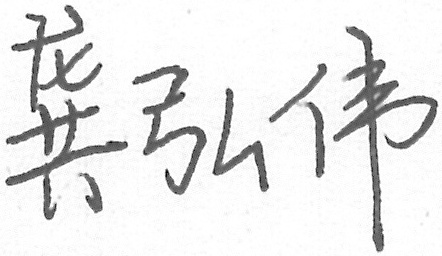 龚弘伟